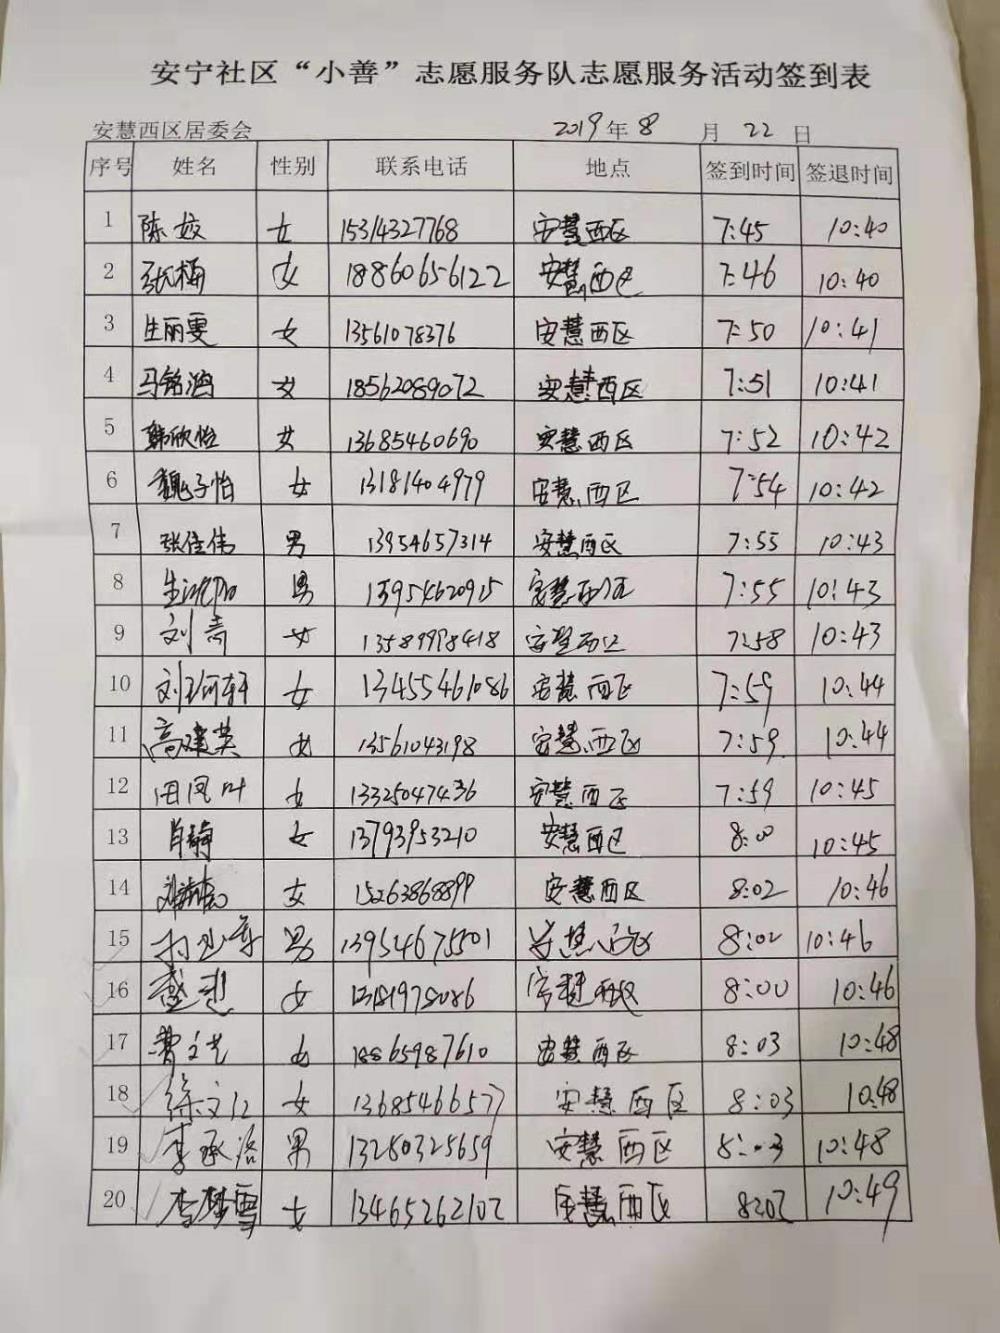 安宁社区“小善”志愿服务队志愿服务活动签到表
安慧西区居委会 2019年8月22日
序号 姓名 性别 联系电话 地点 签到时间 签退时间
1 陈姣 女 15314327768 安慧西区 7:45 10:40
2 张梅 女 18860656122 安慧西区 7:46 10:40
3 生丽雯 女 13561078376 安慧西区 7:50 10:41
4 马铭涵 女 18562089072 安慧西区 7:51 10:41
5 韩欣怡 女 13685460690 安慧西区 7:52 10:42
6 魏子怡 女 13181404979 安慧西区 7:54 10:42
7 张佳伟 男 13954657314 安慧西区 7:55 10:43
8 男 13954620915 安慧西区 7:55 10:43
9 刘青 女 13589998418 安慧西区 7:58 10:43
10 女 13455461086 安慧西区 7:59 10:44
11 高建英 女 13561043198 安慧西区 7:59 10:44
12 田凤叶 女 13325047436 安慧西区 7:59 10:45
13 肖静 女 13793953210 安慧西区 8:00 10:45
14 女 15263868899 安慧西区 8:02 10:46
15 男 13954675501 安慧西区 8:02 10:46
16 女 13181975086 安慧西区 8:00 10:46
17 曹文芝 女 18865987610 安慧西区 8:03 10:48
18 女 13685466577 安慧西区 8:03 10:48
19 李承洛 男 13280325659 安慧西区 8:03 10:48
20 李梦雪 女 13465262102 安慧西区 10:49